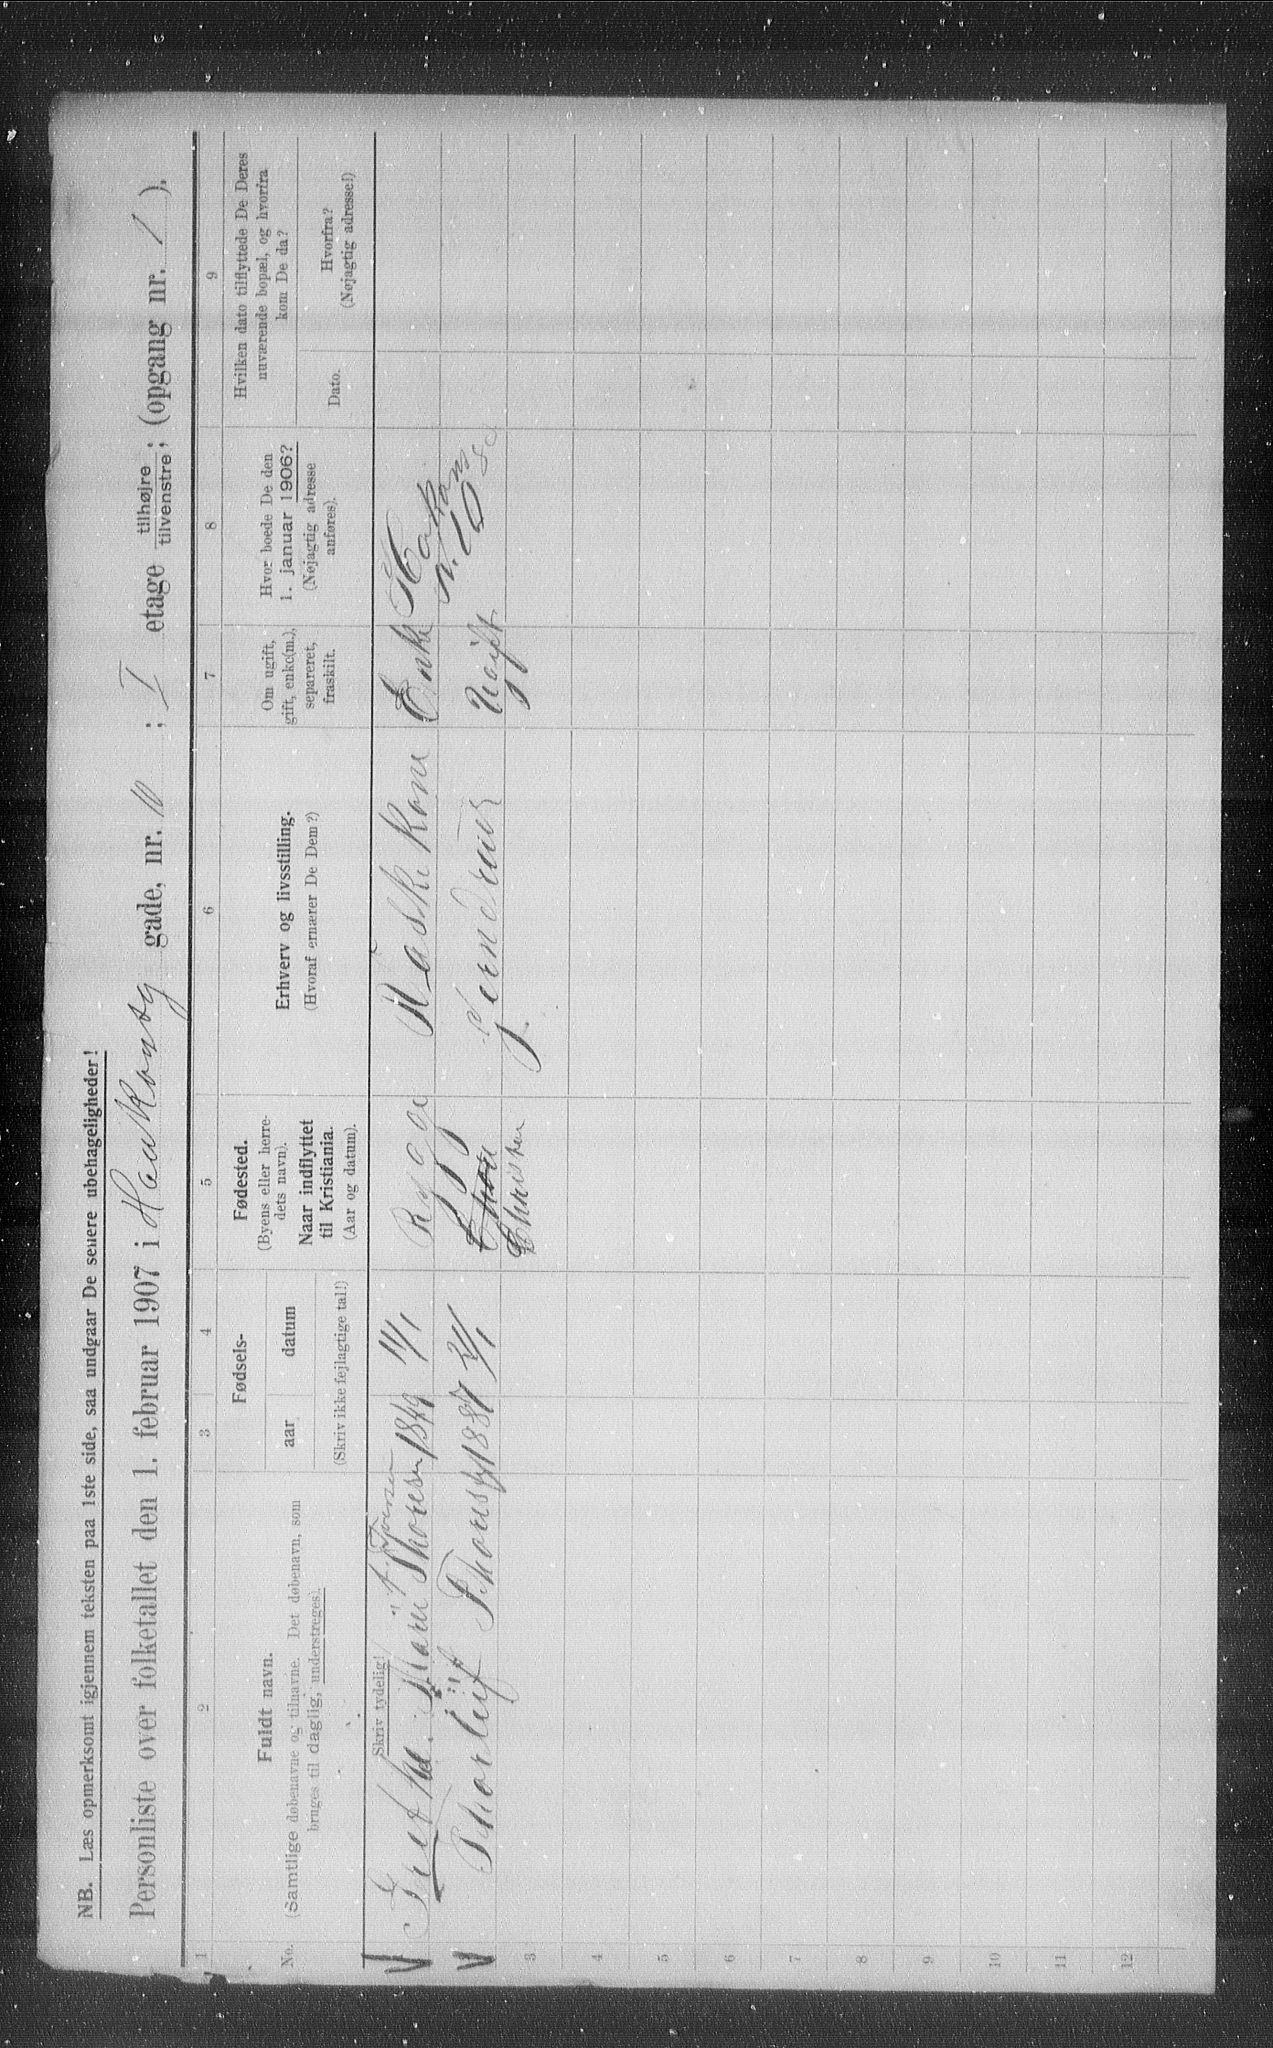 NB. Læs opmerksomt igjennem teksten paa 1ste side, saa undgaar De senere ubehageligheder!
Personliste over folketallet den 1. februar 1907 i Haakonsg gade, nr. 10 ; I etage tilhøjre / tilvenstre ; (opgang nr. 1 ).
1 2 3 4 5 6 7 8 9
No.
Fuldt navn.
(Samtlige døbenavne og tilnavne. Det døbenavn, som
bruges til daglig, understreges).
Fødsels-
aar datum
(Skriv ikke fejlagtige tal!)
Fødested.
(Byens eller herre-
dets navn).
Naar indflyttet
til Kristiania.
(Aar og datum).
Erhverv og livsstilling.
(Hvoraf ernærer De Dem?)
Om ugift,
gift, enke(m.),
separeret,
fraskilt.
Hvor boede De den
1. januar 1906?
(Nøjagtig adresse
anføres).
Hvilken dato tilflyttede De Deres
nuværende bopæl, og hvorfra
kom De da?
Dato.
Hvorfra?
(Nøjagtig adresse!)
Skriv tydelig!
Marie Thoresen 1849 11/1 Rygge Vaske Kone Enke
N. 10
Thorleif Thoresen 1887 21/1 Christian Ugift
3
4
5
6
7
8
9
10
11
12